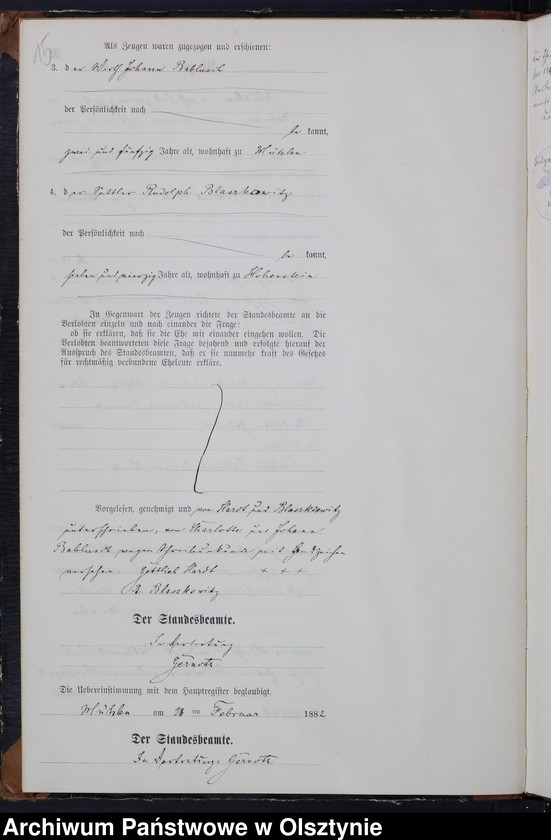 15
Als Zeugen waren zugezogen und erschienen:
3. der Wirth Johann Bablusch
der Persönlichkeit nach
be kannt,
zwei und fünfzig Jahre alt, wohnhaft zu Mühlen
4. der Sattler Rudolph Blaszkowitz
der Persönlichkeit nach
be kannt,
sieben und vierzig Jahre alt, wohnhaft zu Hohenstein
In Gegenwart der Zeugen richtete der Standesbeamte an die
Verlobten einzeln und nach einander die Frage:
ob sie erklären, daß sie die Ehe mit einander eingehen wollen. Die
Verlobten beantworteten diese Frage bejahend und erfolgte hierauf der
Ausspruch des Standesbeamten, daß er sie nunmehr kraft des Gesetzes
für rechtmäßig verbundene Eheleute erkläre.
Vorgelesen, genehmigt und von Hardt und Blaszkowitz
unterschrieben, von Charlotte und Johann
Bablusch wegen Schreibunkunde mit Handzeichen
versehen. Gottlieb Hardt + + +
R. Blaszkowitz
Der Standesbeamte.
In Vertretung
Gernotz
Die Uebereinstimmung mit dem Hauptregister beglaubigt.
Mühlen am ten Februar 1882
Der Standesbeamte.
In Vertretung: Gernotz
Archiwum Państwowe w Olsztynie